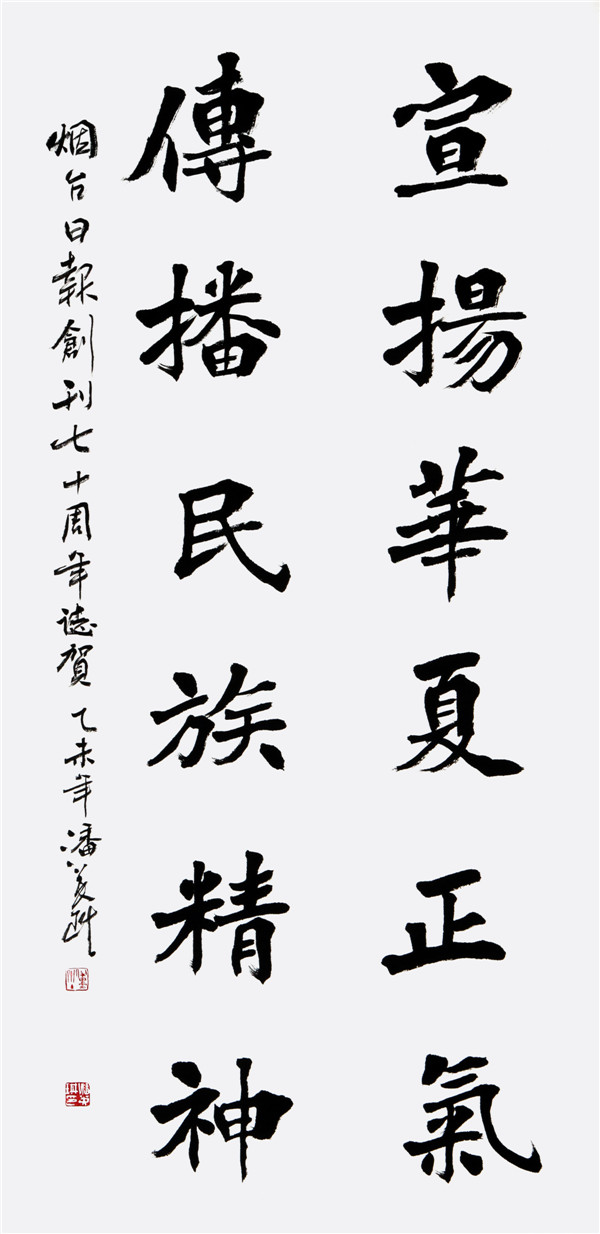 宣揚華夏正氣
傳播民族精神
烟台日報創刊七十周年誌賀 乙未年潘